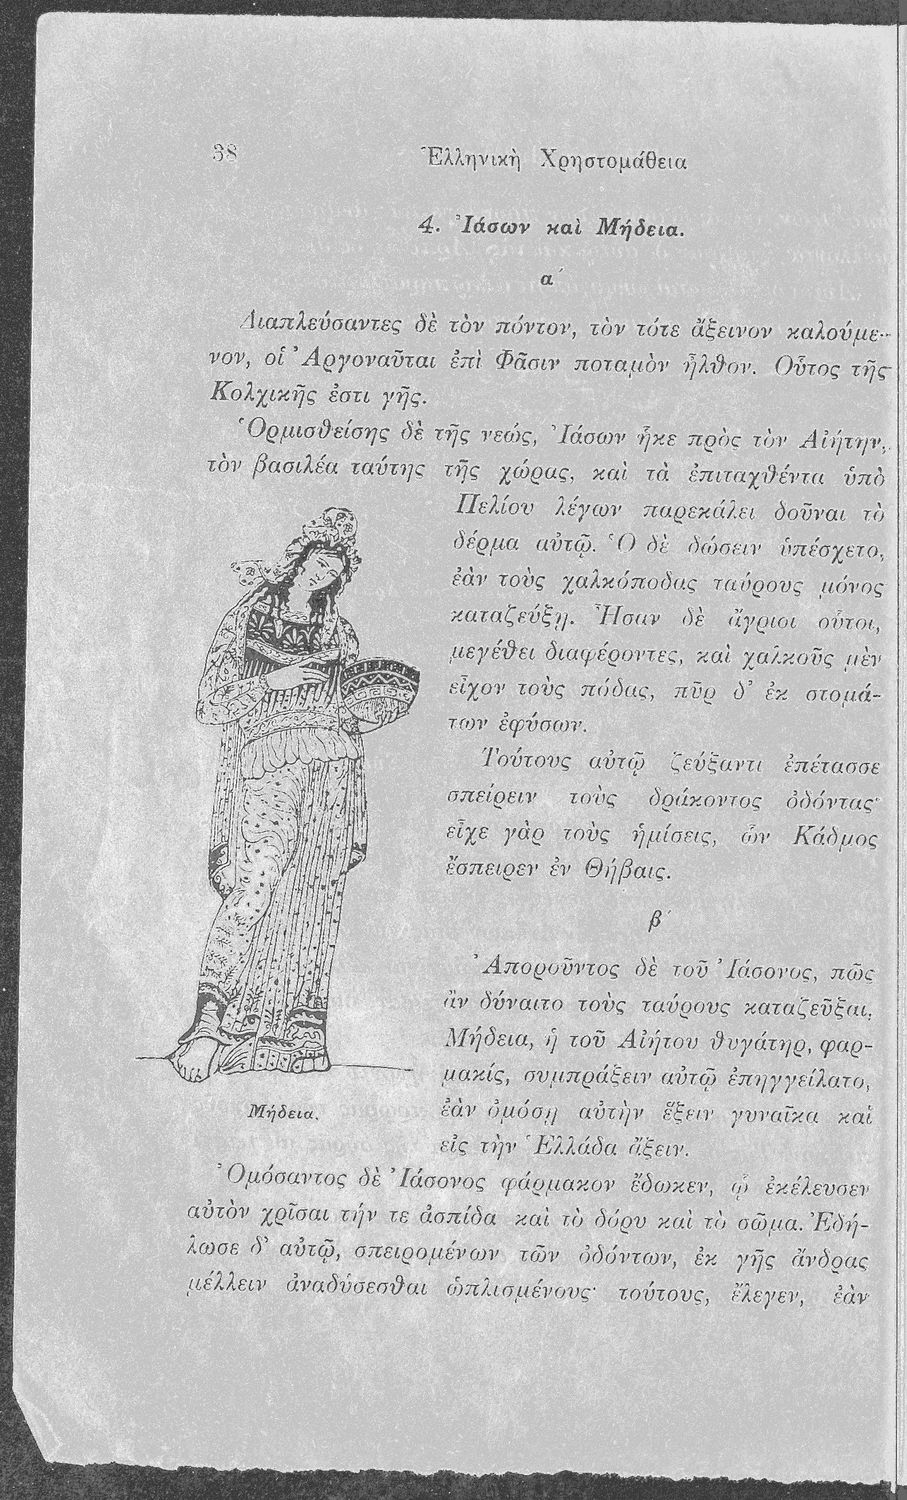 38
Ἑλληνικὴ Χρηστομάθεια
4. Ἰάσων καὶ Μήδεια.
α΄
Διαπλεύσαντες δὲ τὸν πόντον, τὸν τότε ἄξεινον καλούμε-
νον, οἱ Ἀργοναῦται ἐπὶ Φᾶσιν ποταμὸν ἦλθον. Οὗτος τῆς
Κολχικῆς ἐστι γῆς.
Ὁρμισθείσης δὲ τῆς νεώς, Ἰάσων ἧκε πρὸς τὸν Αἰήτην,
τὸν βασιλέα ταύτης τῆς χώρας, καὶ τὰ ἐπιταχθέντα ὑπὸ
Πελίου λέγων παρεκάλει δοῦναι τὸ
δέρμα αὐτῷ. Ὁ δὲ δώσειν ὑπέσχετο,
ἐὰν τοὺς χαλκόποδας ταύρους μόνος
καταζεύξῃ. Ἦσαν δὲ ἄγριοι οὗτοι,
μεγέθει διαφέροντες, καὶ χαλκοῦς μὲν
εἶχον τοὺς πόδας, πῦρ δ’ ἐκ στομά-
των ἐφύσων.
Τούτους αὐτῷ ζεύξαντι ἐπέτασσε
σπείρειν τοὺς δράκοντος ὀδόντας·
εἶχε γὰρ τοὺς ἡμίσεις, ὧν Κάδμος
ἔσπειρεν ἐν Θήβαις.
β΄
Ἀποροῦντος δὲ τοῦ Ἰάσονος, πῶς
ἂν δύναιτο τοὺς ταύρους καταζεῦξαι,
Μήδεια, ἡ τοῦ Αἰήτου θυγάτηρ, φαρ-
μακίς, συμπράξειν αὐτῷ ἐπηγγείλατο,
ἐὰν ὀμόσῃ αὐτὴν ἕξειν γυναῖκα καὶ
εἰς τὴν Ἑλλάδα ἄξειν.
Μήδεια.
Ὀμόσαντος δὲ Ἰάσονος φάρμακον ἔδωκεν, ᾧ ἐκέλευσεν
αὐτὸν χρῖσαι τήν τε ἀσπίδα καὶ τὸ δόρυ καὶ τὸ σῶμα. Ἐδή-
λωσε δ’ αὐτῷ, σπειρομένων τῶν ὀδόντων, ἐκ γῆς ἄνδρας
μέλλειν ἀναδύσεσθαι ὡπλισμένους· τούτους, ἔλεγεν, ἐὰν